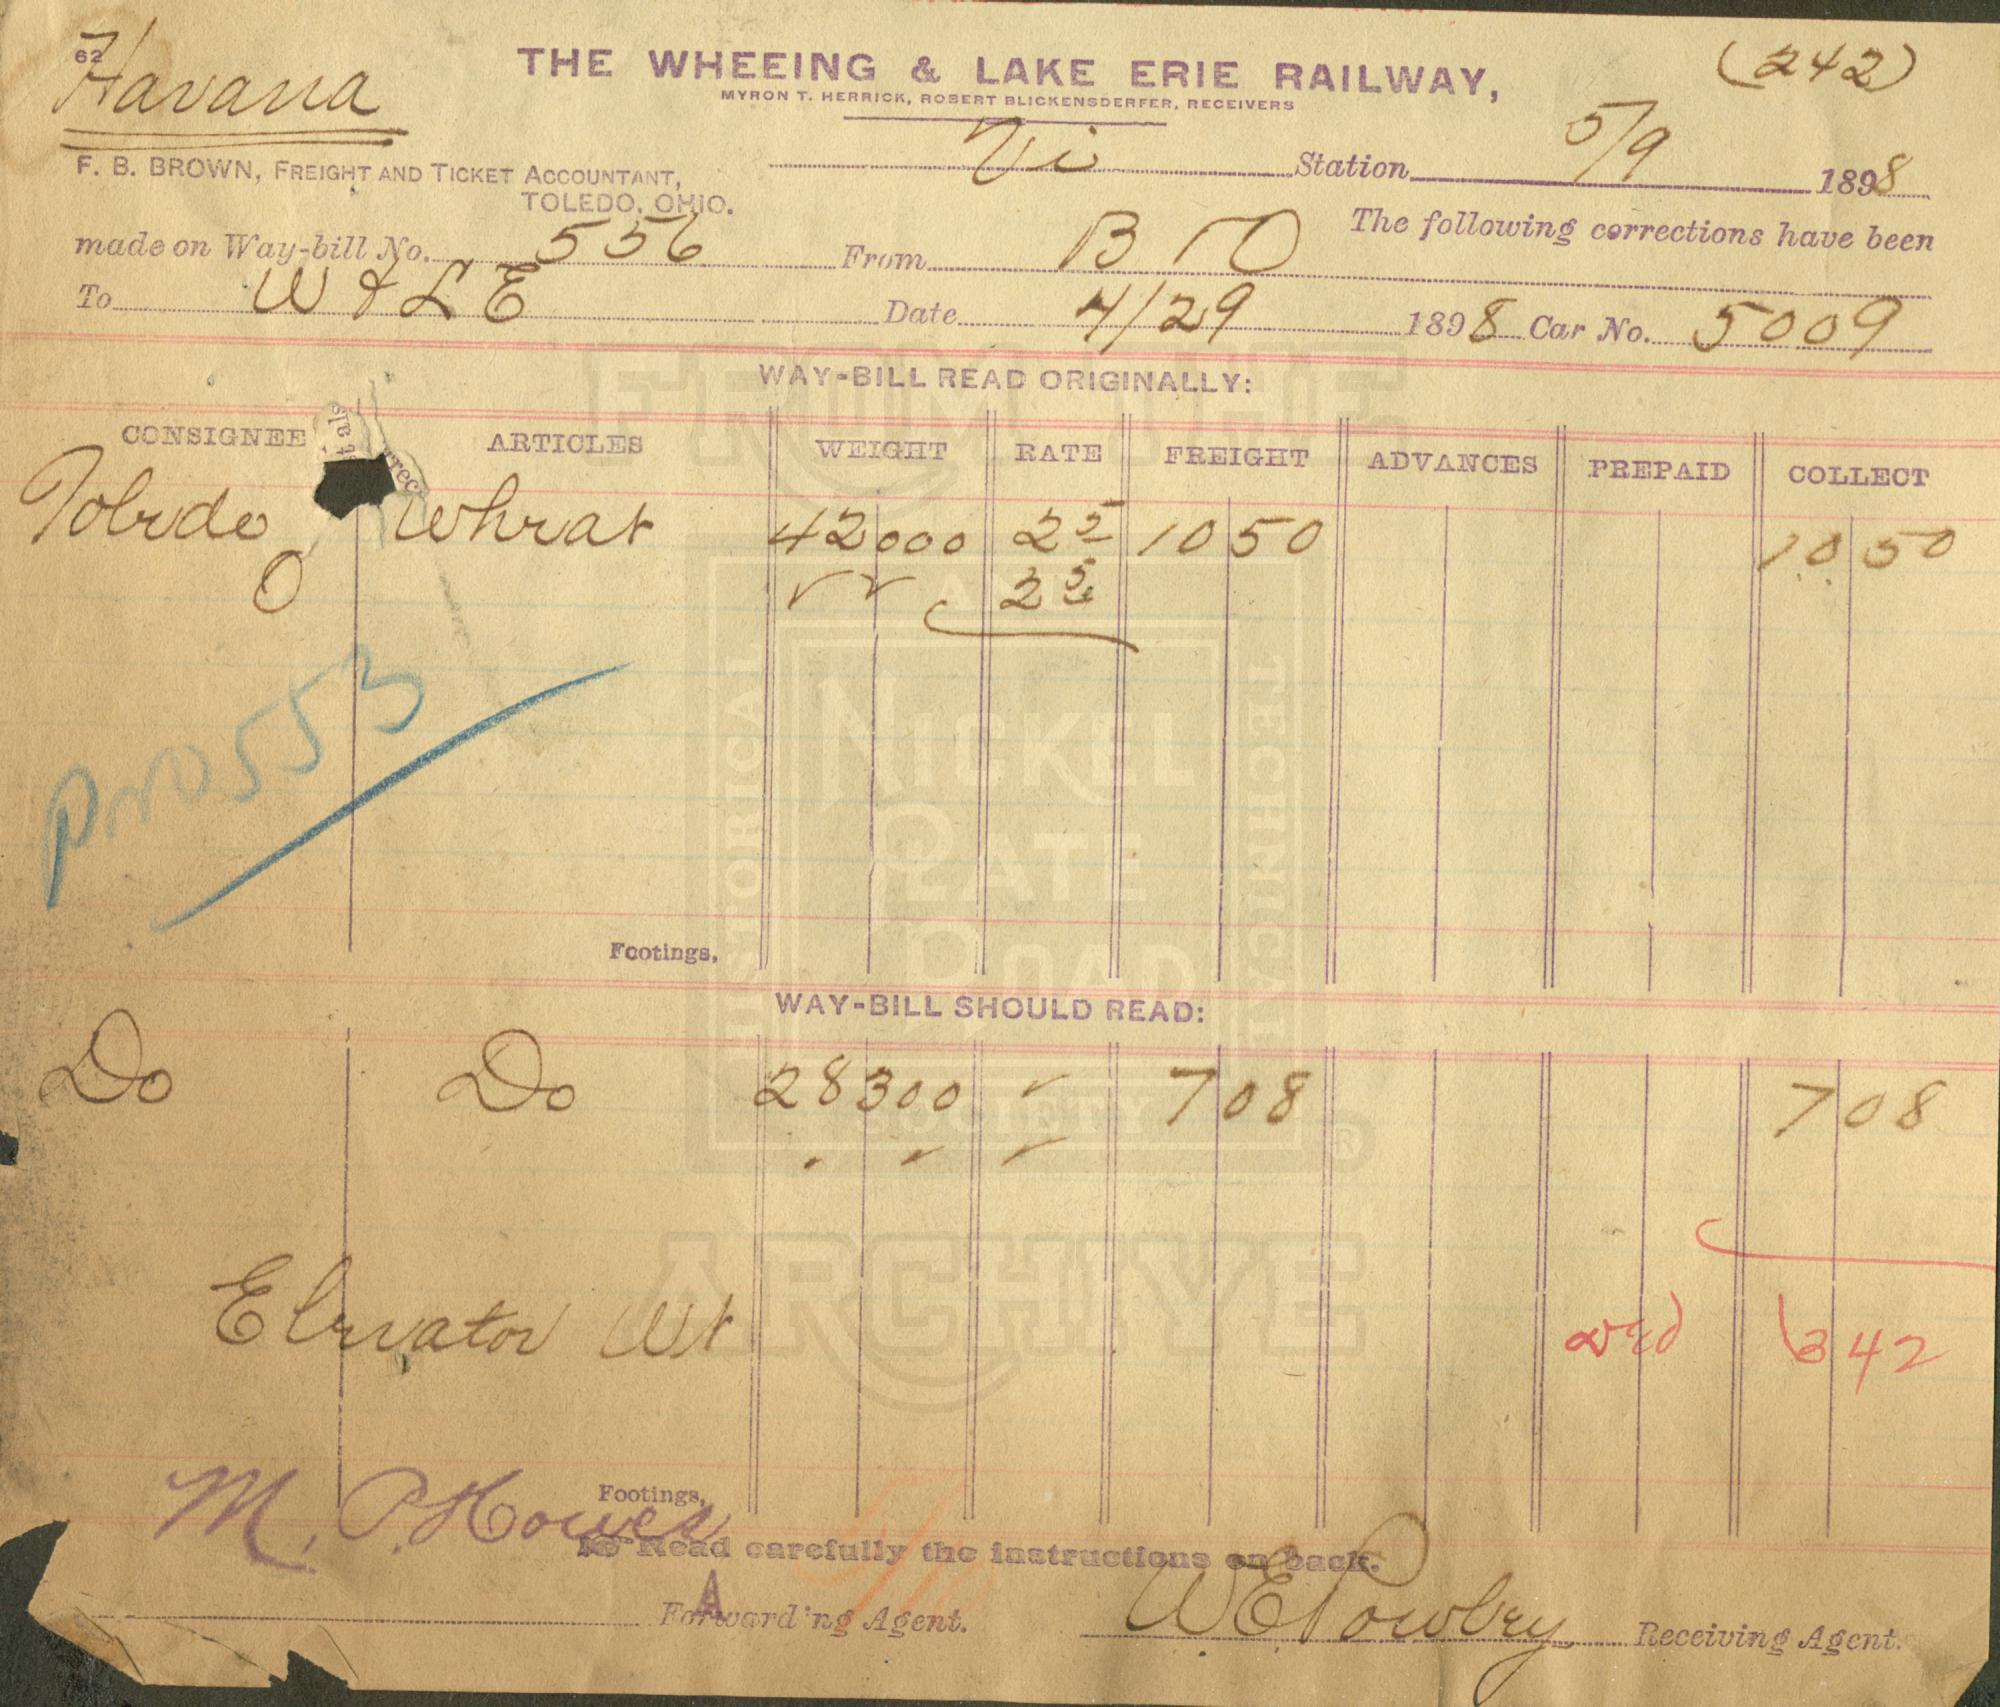 62
Havana
THE WHEEING & LAKE ERIE RAILWAY,
(242)
MYRON T. HERRICK, ROBERT BLICKENSDERFER, RECEIVERS
Vi Station 5/9 1898
F. B. BROWN, FREIGHT AND TICKET ACCOUNTANT,
TOLEDO, OHIO.
The following corrections have been
made on Way-bill No. 556 From B TO
To W & L E Date 4/29 1898 Car No. 5009
WAY-BILL READ ORIGINALLY:
CONSIGNEE ARTICLES WEIGHT RATE FREIGHT ADVANCES PREPAID COLLECT
Toledo Wheat 42000 25 10 50 10 50
O 25
pro 553
Footings,
WAY-BILL SHOULD READ:
Do Do 28300 7 08 7 08
Elevator Wt
3 42
M. P. Howes
Footings,
Read carefully the instructions on back.
A
Forwarding Agent. W E Powbey Receiving Agent.
FROM THE
NICKEL
PLATE
ROAD
HISTORICAL
TECHNICAL
SOCIETY
ARCHIVE